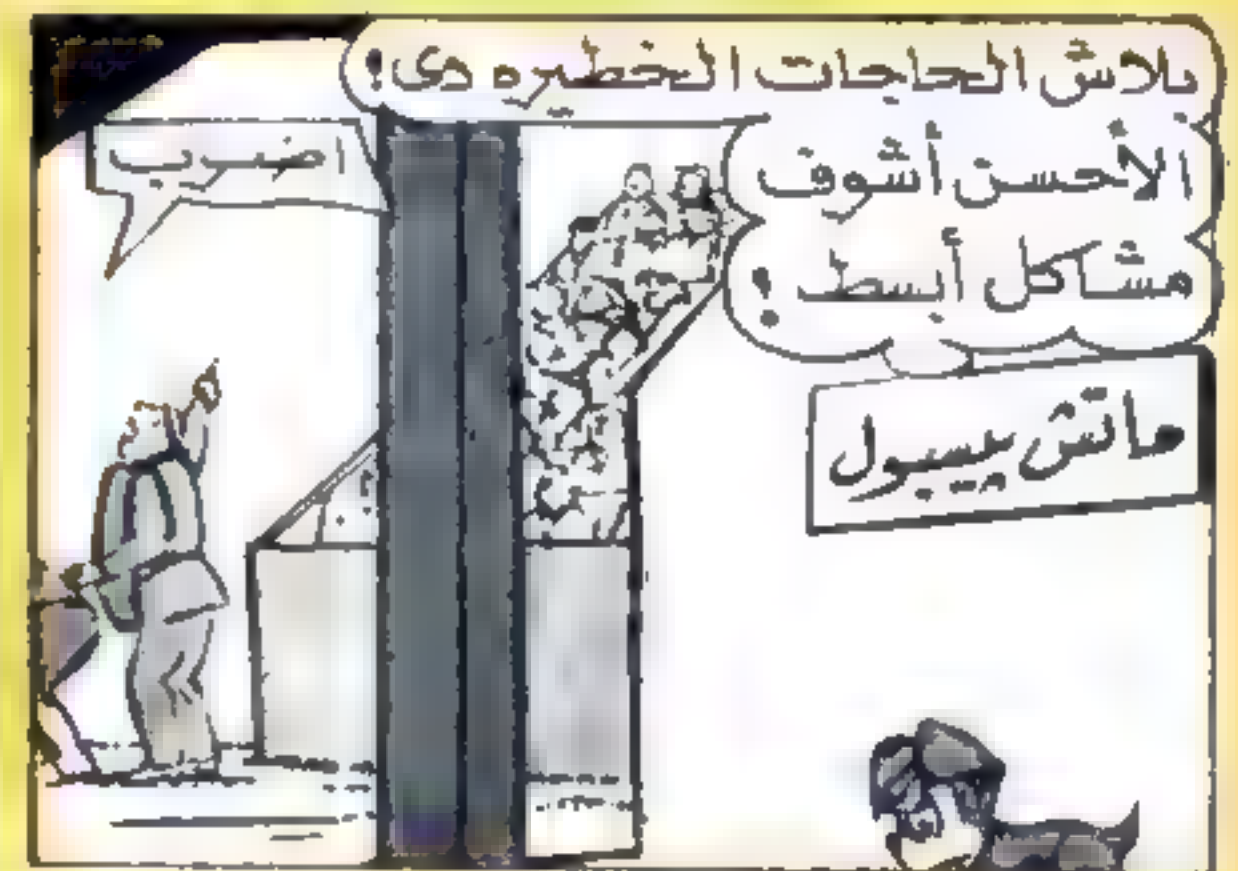 بلاش الحاجات الخطيره دى!
الأحسن أشوف
مشاكل أبسط!
اضرب
ماتش بيسبول